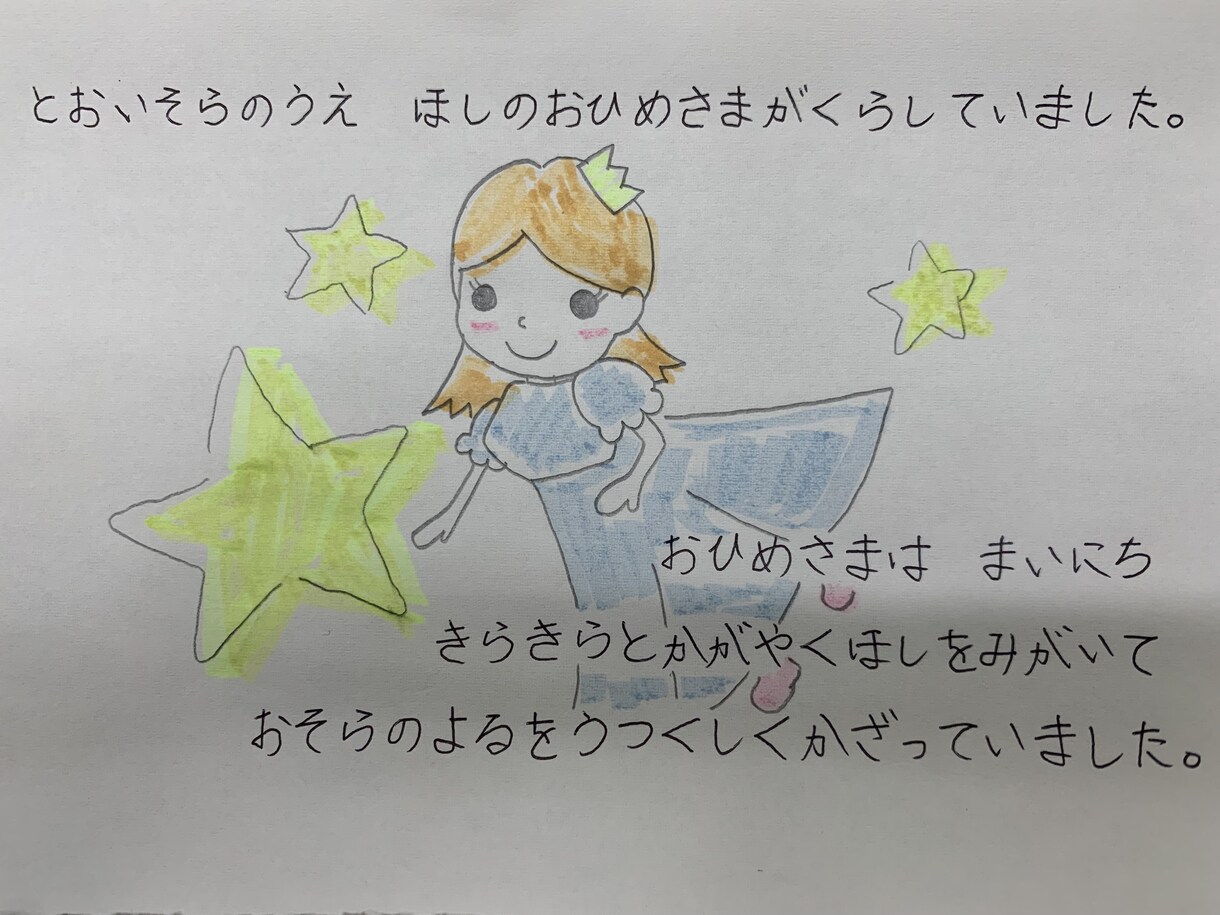 とおいそらのうえ　ほしのおひめさまがくらしていました。
おひめさまは　まいにち
きらきらとかがやくほしをみがいて
おそらのよるをうつくしくかざっていました。